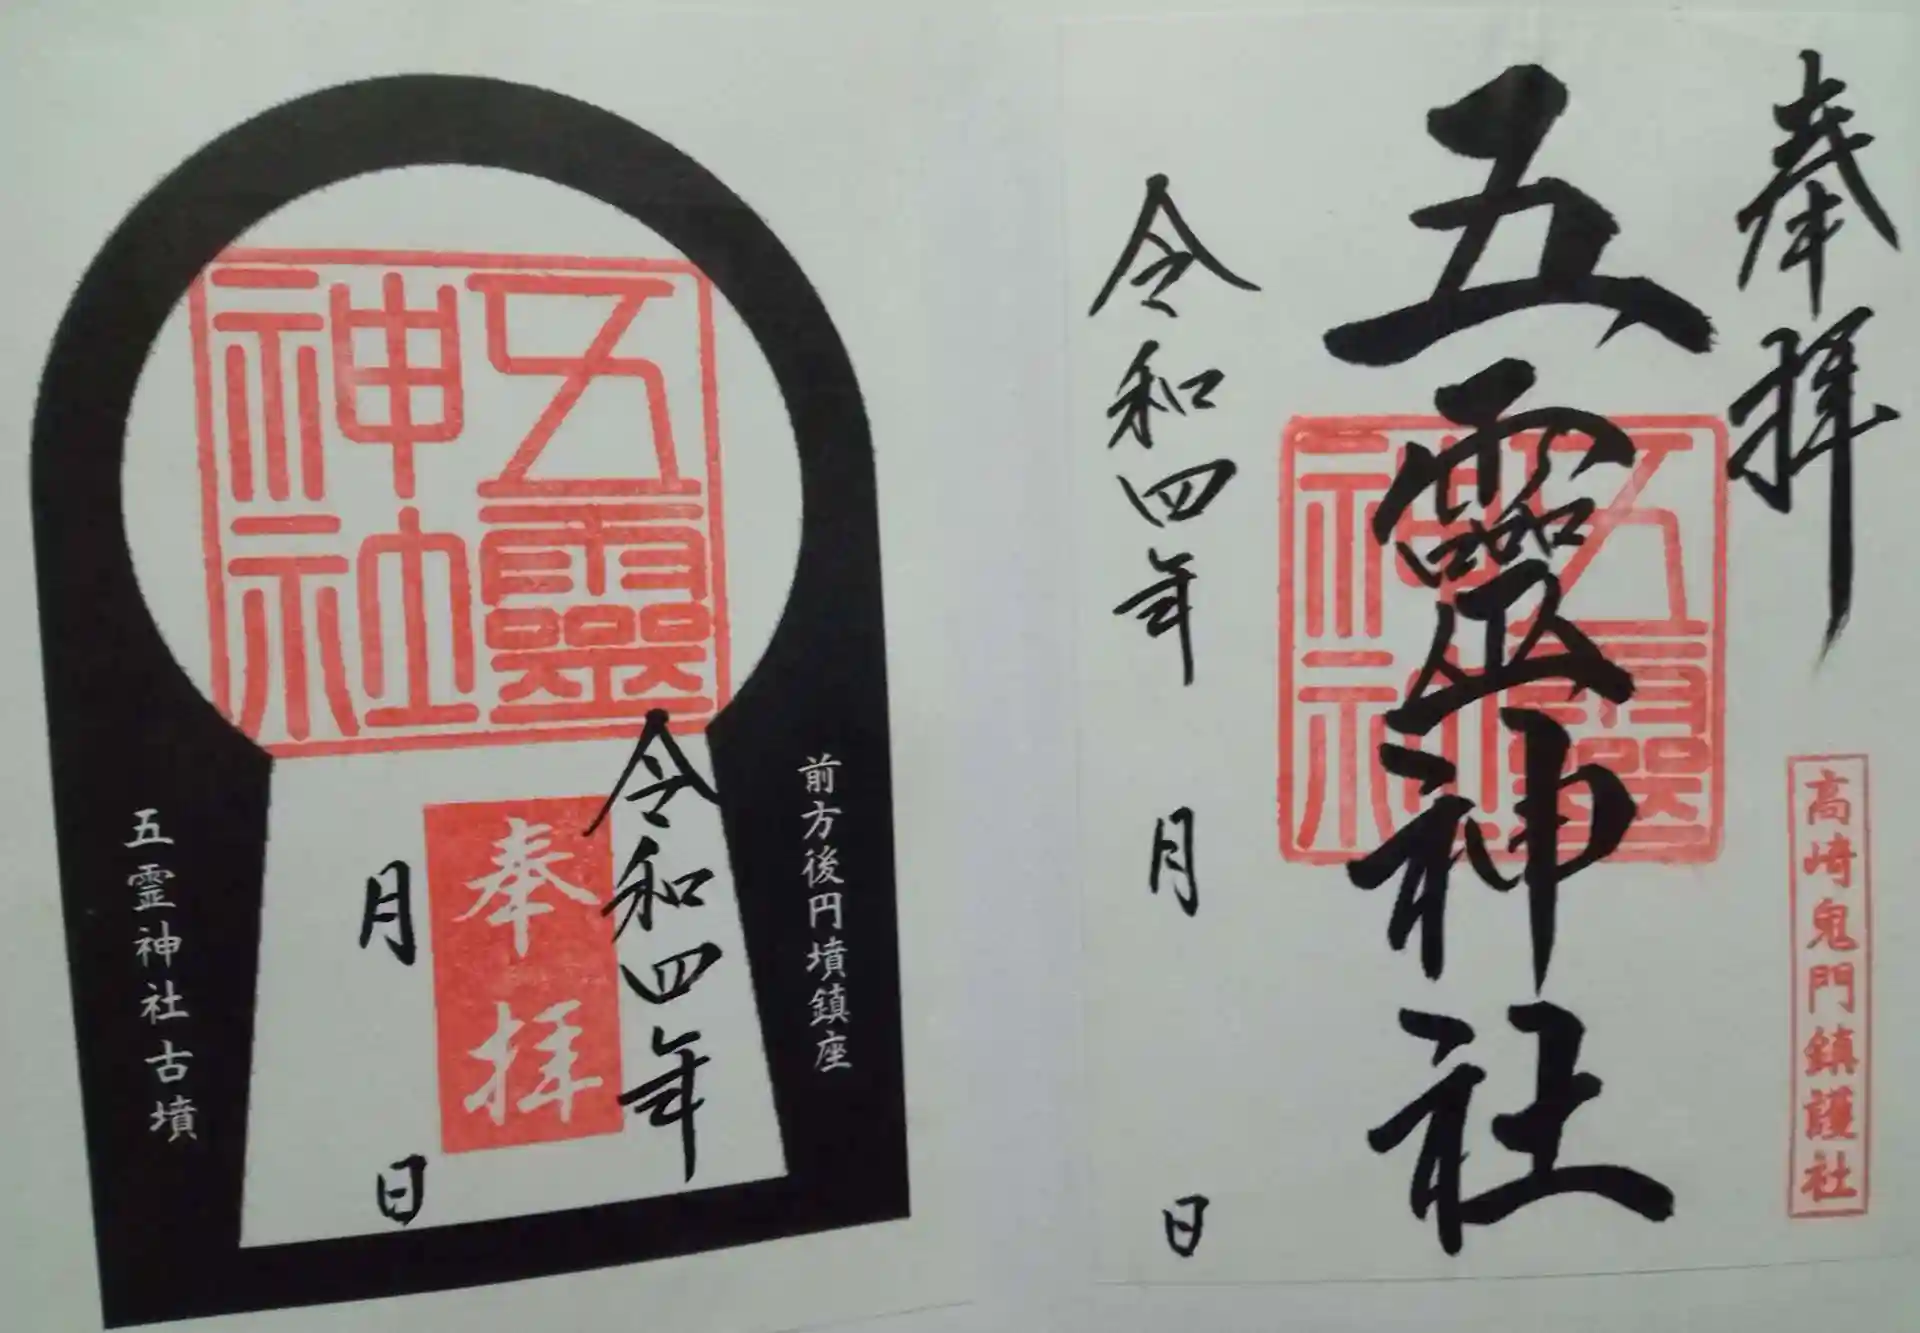 奉拝
高崎鬼門鎮護社
五靈神社
五靈神社
令和四年 月 日
前方後円墳鎮座
五靈神社
奉拝
令和四年
月 日
五霊神社古墳